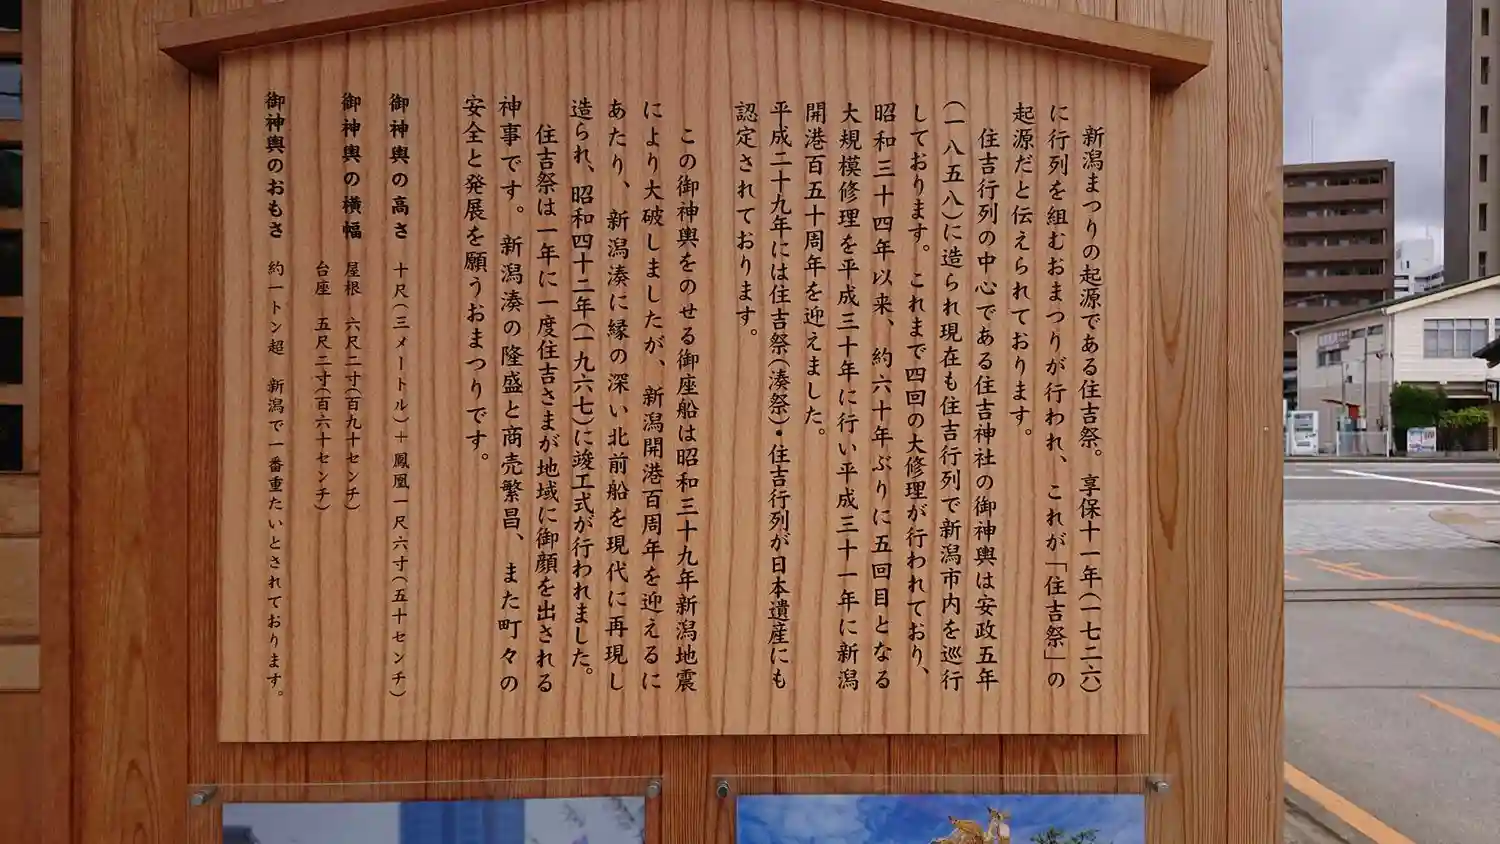 新潟まつりの起源である住吉祭。享保十一年(一七二六)
に行列を組むおまつりが行われ、これが「住吉祭」の
起源だと伝えられております。
住吉行列の中心である住吉神社の御神輿は安政五年
(一八五八)に造られ現在も住吉行列で新潟市内を巡行
しております。これまで四回の大修理が行われており、
昭和三十四年以来、約六十年ぶりに五回目となる
大規模修理を平成三十年に行い平成三十一年に新潟
開港百五十周年を迎えました。
平成二十九年には住吉祭(湊祭)・住吉行列が日本遺産にも
認定されております。
この御神輿をのせる御座船は昭和三十九年新潟地震
により大破しましたが、新潟開港百周年を迎えるに
あたり、新潟湊に縁の深い北前船を現代に再現し
造られ、昭和四十二年(一九六七)に竣工式が行われました。
住吉祭は一年に一度住吉さまが地域に御顔を出される
神事です。新潟湊の隆盛と商売繁昌、また町々の
安全と発展を願うおまつりです。
御神輿の高さ 十尺(三メートル)＋鳳凰一尺六寸(五十センチ)
御神輿の横幅 屋根 六尺二寸(百九十センチ)
台座 五尺二寸(百六十センチ)
御神輿のおもさ 約一トン超 新潟で一番重たいとされております。